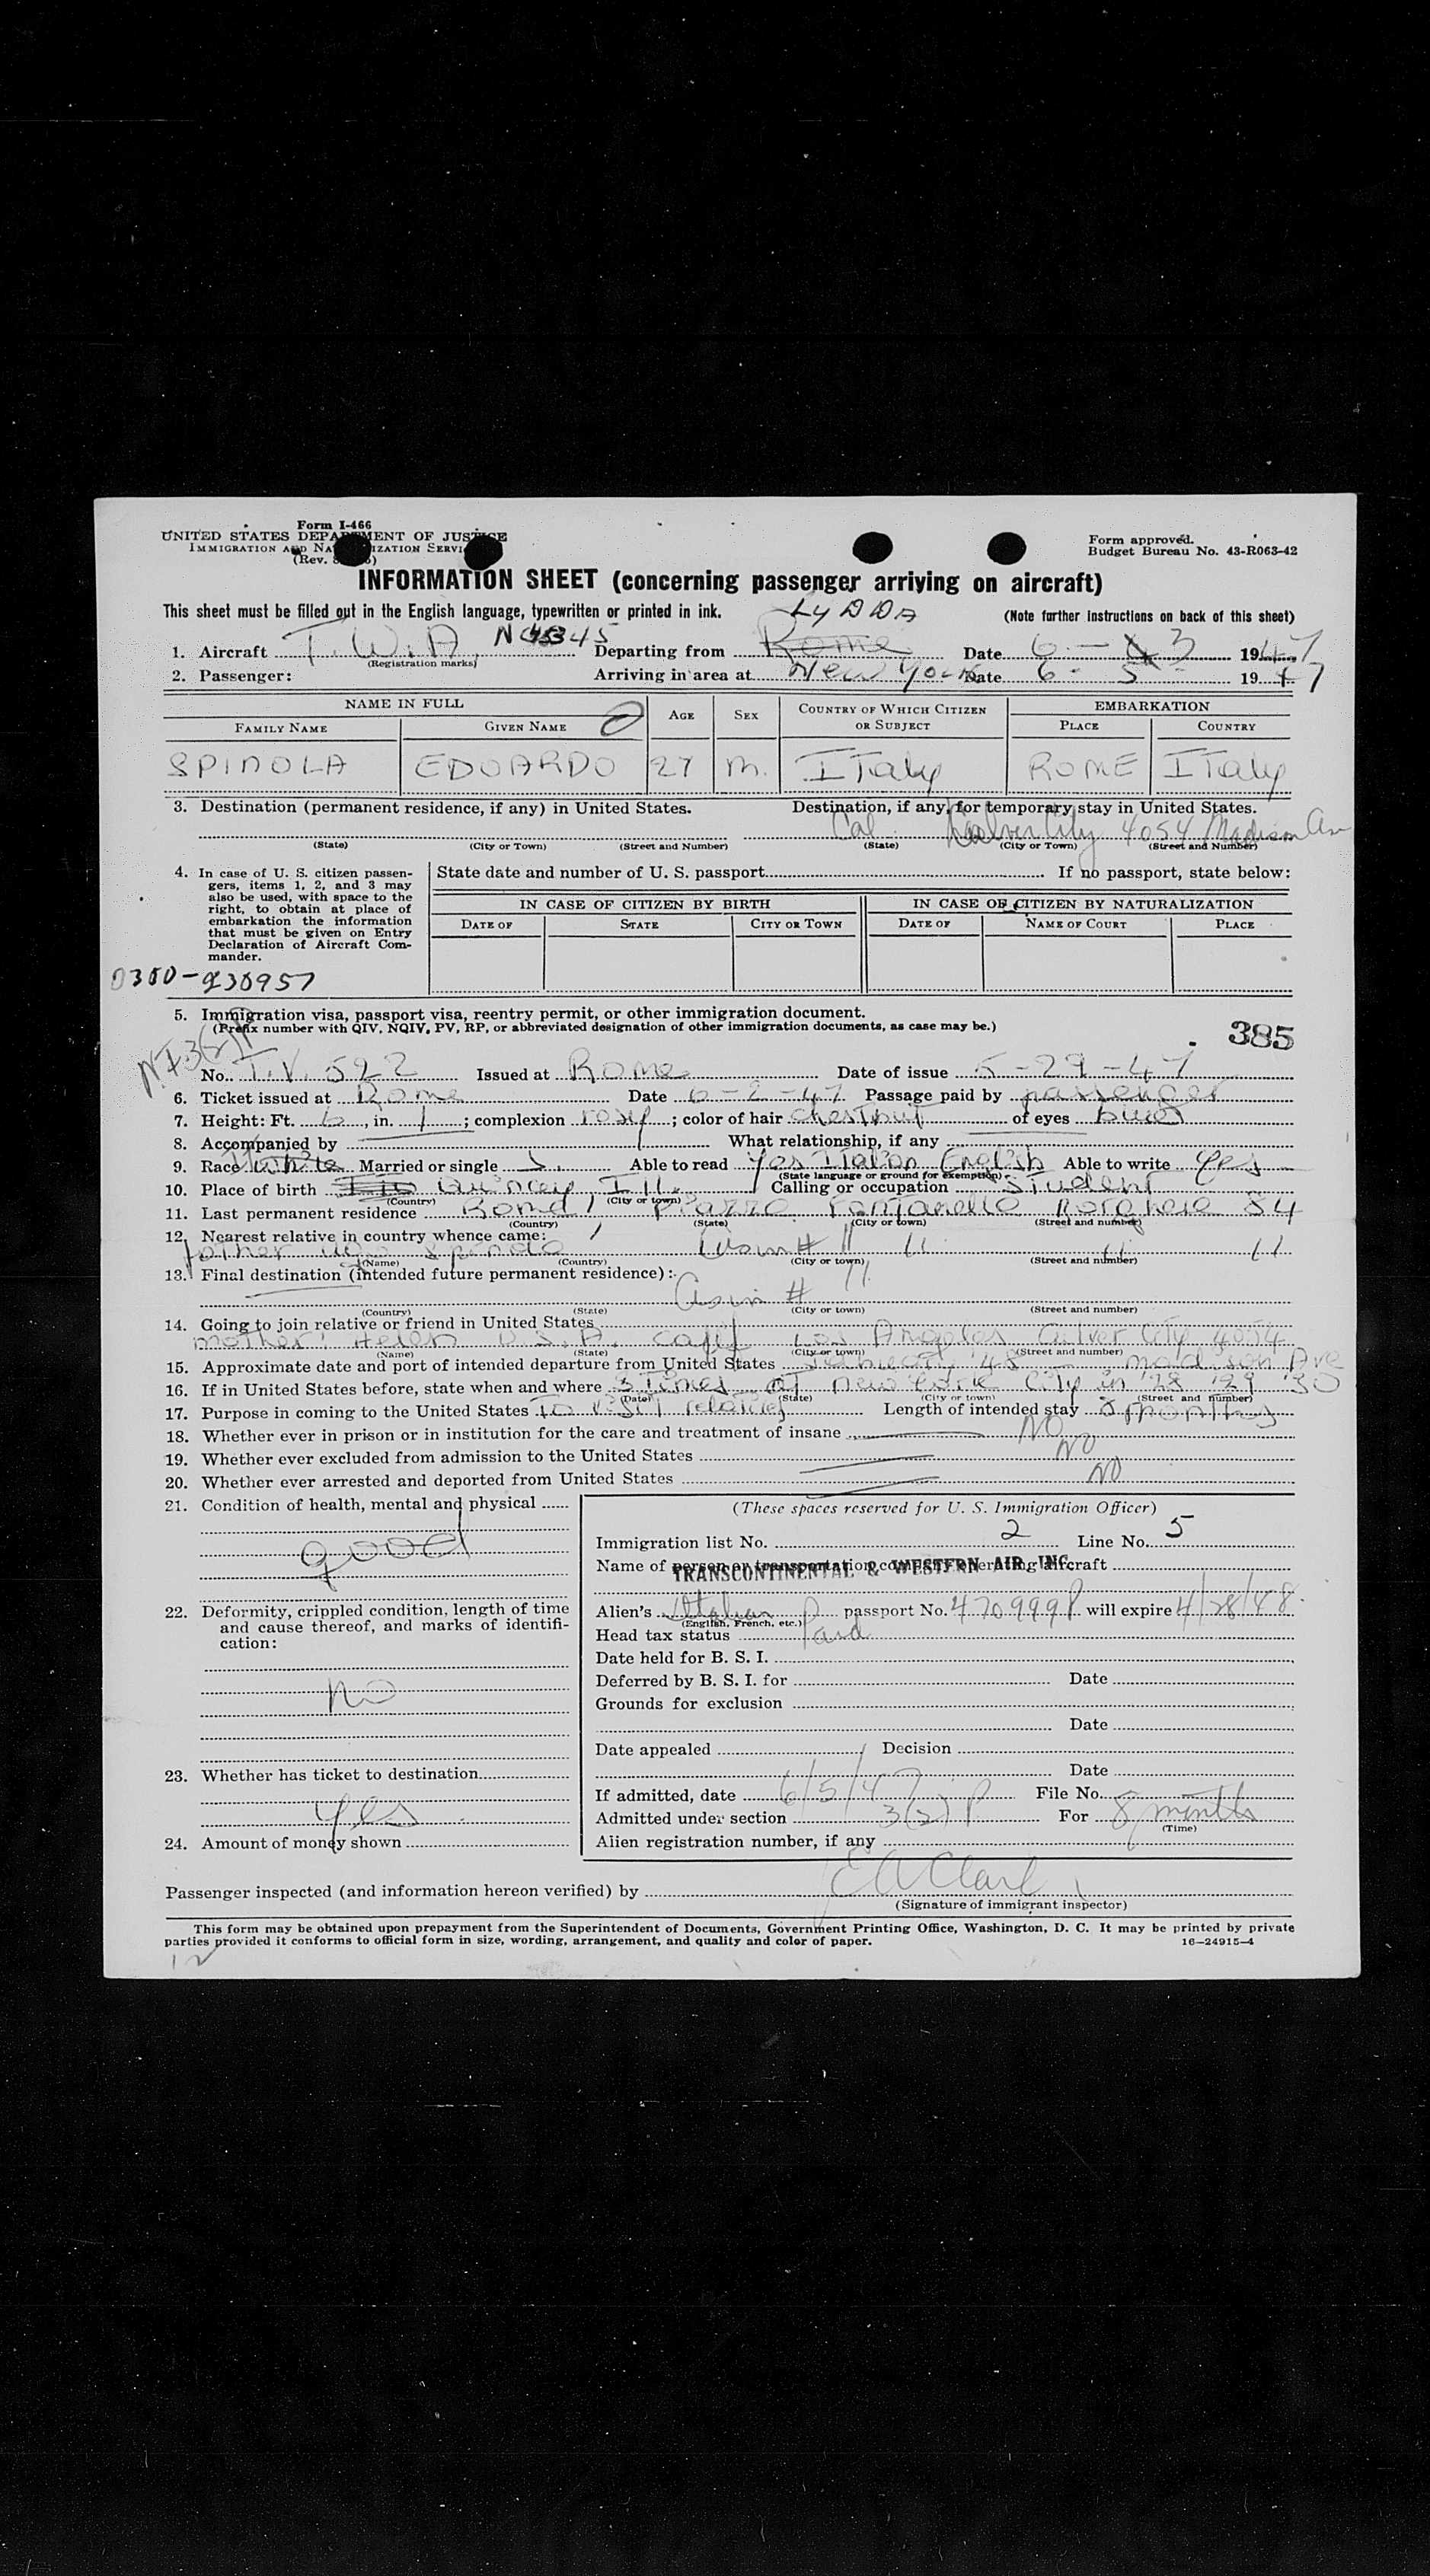 Form I-466
UNITED STATES DEPARTMENT OF JUSTICE
IMMIGRATION AND NATURALIZATION SERVICE
(Rev.
Form approved.
Budget Bureau No. 43-R063-42
INFORMATION SHEET (concerning passenger arriving on aircraft)
This sheet must be filled out in the English language, typewritten or printed in ink.
LYDDA
(Note further instructions on back of this sheet)
1. Aircraft T.W.A. Departing from Rome Date 6-3 1947
(Registration marks)
2. Passenger: Arriving in area at New York Date 6-5 1947
NAME IN FULL AGE SEX COUNTRY OF WHICH CITIZEN OR SUBJECT EMBARKATION
FAMILY NAME GIVEN NAME PLACE COUNTRY
SPINOLA EDOARDO 27 M. ITaly ROME ITaly
3. Destination (permanent residence, if any) in United States. Destination, if any, for temporary stay in United States.
Cal Culver City 4054 Madison Av
(State) (City or Town) (Street and Number) (State) (City or Town) (Street and Number)
4. In case of U. S. citizen passengers, items 1, 2, and 3 may also be used, with space to the right, to obtain at place of embarkation the information that must be given on Entry Declaration of Aircraft Commander.
State date and number of U. S. passport If no passport, state below:
IN CASE OF CITIZEN BY BIRTH IN CASE OF CITIZEN BY NATURALIZATION
DATE OF STATE CITY OR TOWN DATE OF NAME OF COURT PLACE
0300-230957
5. Immigration visa, passport visa, reentry permit, or other immigration document.
(Prefix number with QIV, NQIV, PV, RP, or abbreviated designation of other immigration documents, as case may be.)
385
No. T.V. 522 Issued at Rome Date of issue 5-29-47
6. Ticket issued at Rome Date 6-2-47 Passage paid by passenger
7. Height: Ft. 6, in. 1; complexion rosy; color of hair chestnut of eyes blue
8. Accompanied by What relationship, if any
9. Race white Married or single S. Able to read Yes Italian English Able to write Yes
(State language or ground for exemption)
10. Place of birth Quincy, Ill. Calling or occupation Student
(Country) (City or town)
11. Last permanent residence Rome, Piazza Fontanella Borghese 84
(Country) (State) (City or town) (Street and number)
12. Nearest relative in country whence came:
father Ugo Spinola as in # 11 " " "
(Name) (Country) (City or town) (Street and number)
13. Final destination (intended future permanent residence):
as in # 11.
(Country) (State) (City or town) (Street and number)
14. Going to join relative or friend in United States
mother: Helen U.S.A. Calif Los Angeles Culver City 4054
(Name) (State) (City or town) (Street and number)
15. Approximate date and port of intended departure from United States '48 - Madison Ave
16. If in United States before, state when and where 3 Times at New York City in '28 '29 '30
(Date) (State) (City or town) (Street and number)
17. Purpose in coming to the United States To visit relatives Length of intended stay 8 months
18. Whether ever in prison or in institution for the care and treatment of insane NO
19. Whether ever excluded from admission to the United States NO
20. Whether ever arrested and deported from United States NO
21. Condition of health, mental and physical
good
22. Deformity, crippled condition, length of time and cause thereof, and marks of identification:
no
23. Whether has ticket to destination
yes
24. Amount of money shown
(These spaces reserved for U. S. Immigration Officer)
Immigration list No. 2 Line No. 5
Name of person or transportation company operating aircraft
TRANSCONTINENTAL & WESTERN AIR INC.
Alien's Italian passport No. 4709999P will expire 4/28/48.
(English, French, etc.)
Head tax status Paid
Date held for B. S. I.
Deferred by B. S. I. for Date
Grounds for exclusion
Date
Date appealed Decision
Date
If admitted, date 6/5/47 File No.
Admitted under section 3(2) P For 8 months
(Time)
Alien registration number, if any
Passenger inspected (and information hereon verified) by E A Clark
(Signature of immigrant inspector)
This form may be obtained upon prepayment from the Superintendent of Documents, Government Printing Office, Washington, D. C. It may be printed by private
parties provided it conforms to official form in size, wording, arrangement, and quality and color of paper. 16—24915-4